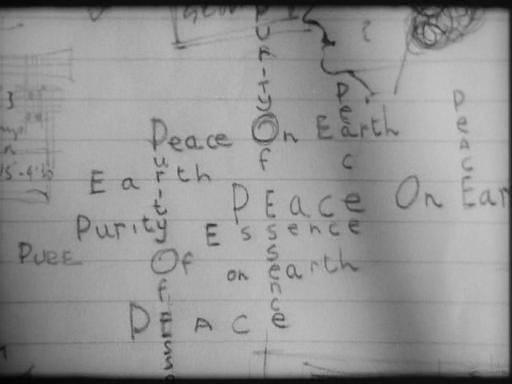 Purity
Of
Peace On Earth
Peace
Peace
Earth
Purity Of
Peace On Ear
Purity Essence
Essence
Pure
Of on earth
Peace